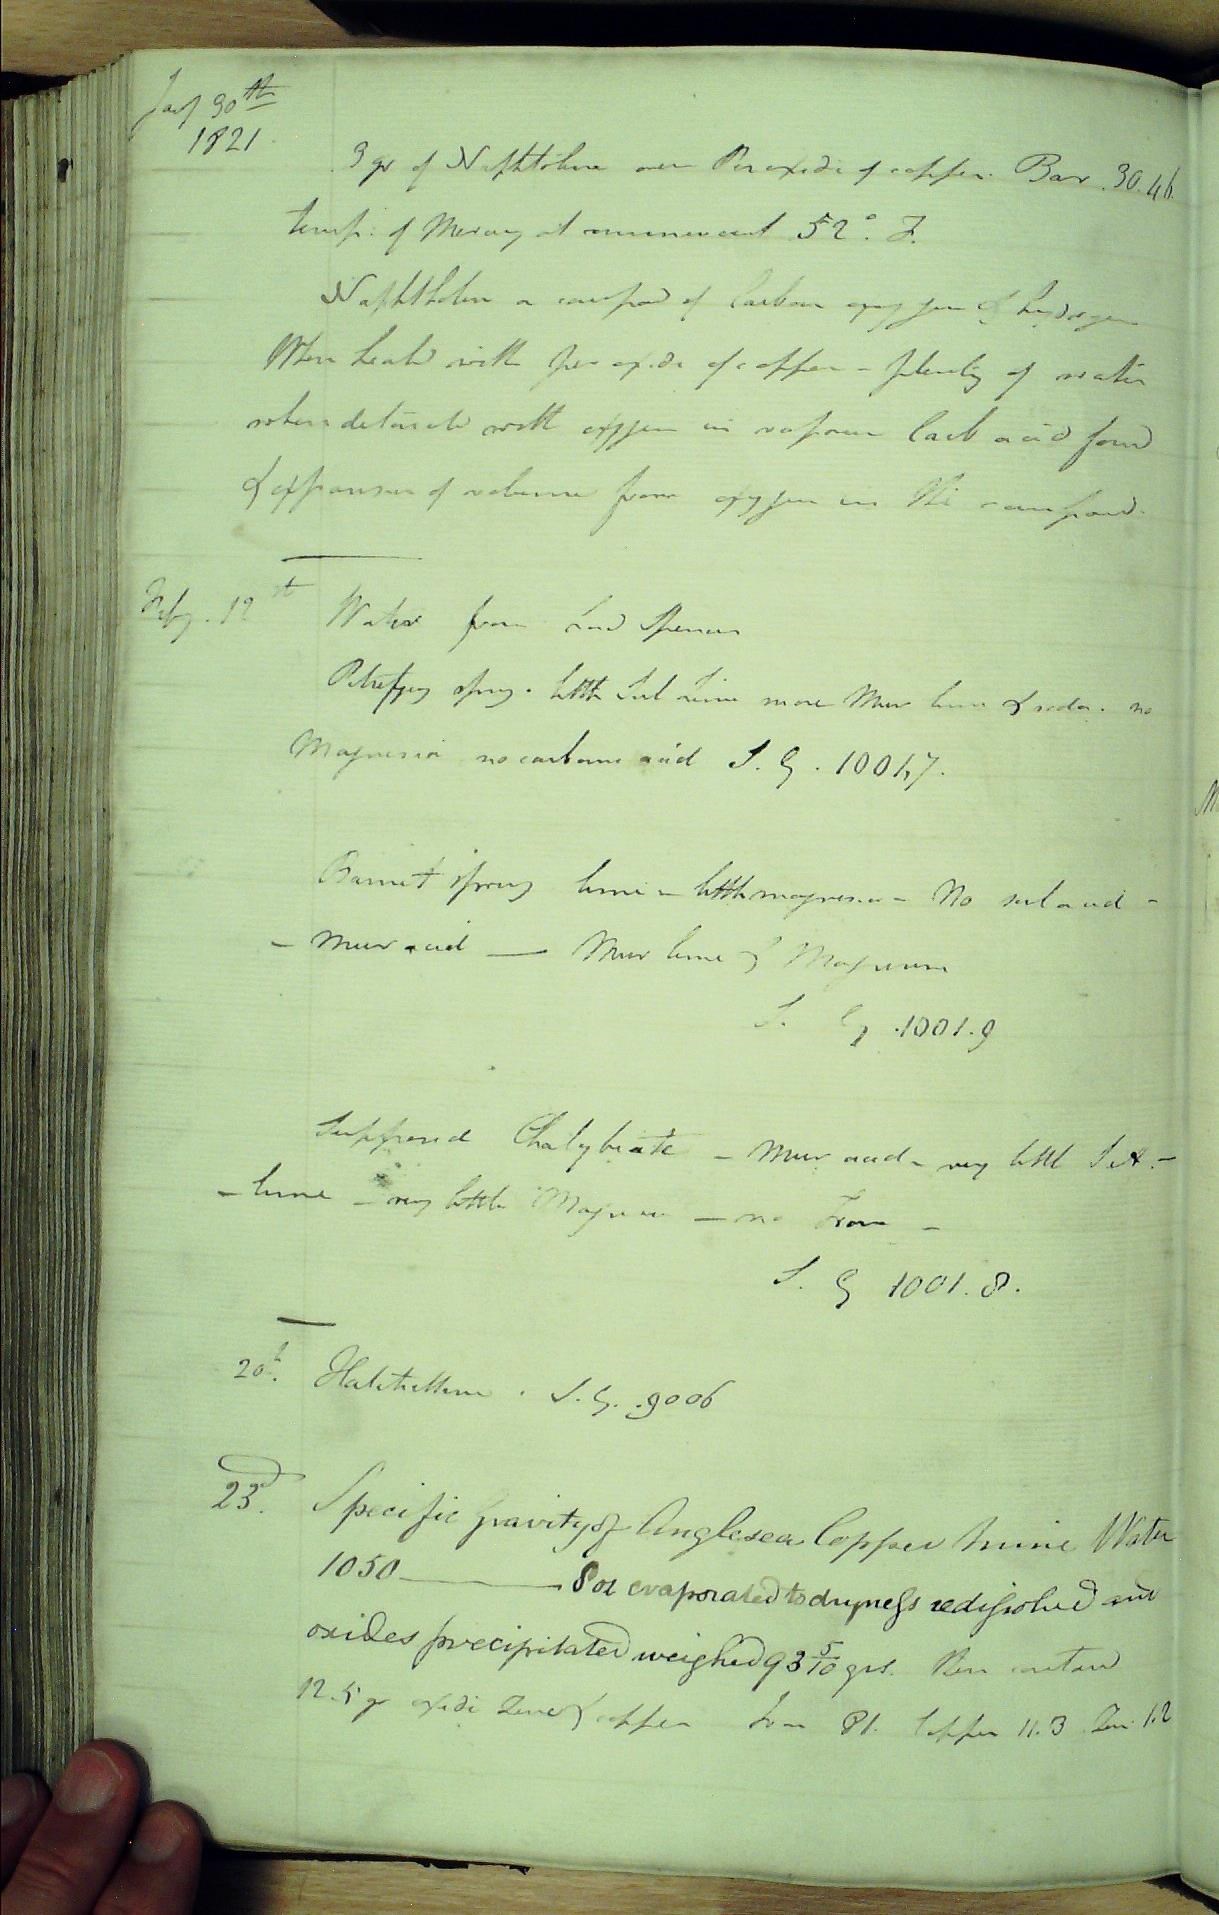 Jany 30th
1821
3 gr of Naphthaline over Peroxide of copper. Bar. 30.46
temp: of Mercury at commencement 52°. F.
Naphthaline a compound of Carbon oxygen & hydrogen
When heated with per oxide of copper - plenty of water
when detonated with oxygen in vapour Carb acid formed
& expansion of volume from oxygen in the compound.
Feby. 12th Water from Lord Spencer
Petrifying spring. little Sul lime more Mur lime & soda. no
Magnesia no carbonic acid S. G. 1001,7.
Barnet spring lime - little magnesia - No sul acid -
- Mur acid — Mur lime & Magnesia
S. G .1001.9
Supposed Chalybeate - Mur acid - very little Sul -
- lime - very little Magnesia - no Iron -
S. G 1001.8.
20th. Hatchettine. S. G. .9006
23d. Specific Gravity of Anglesea Copper Mine Water
1050 — 8 oz evaporated to dryness redissolved and
oxides precipitated weighed 93 5/10 grs. This contained
12.5 gr oxide Zinc & copper Iron 81. Copper 11.3 Zin. 1.2